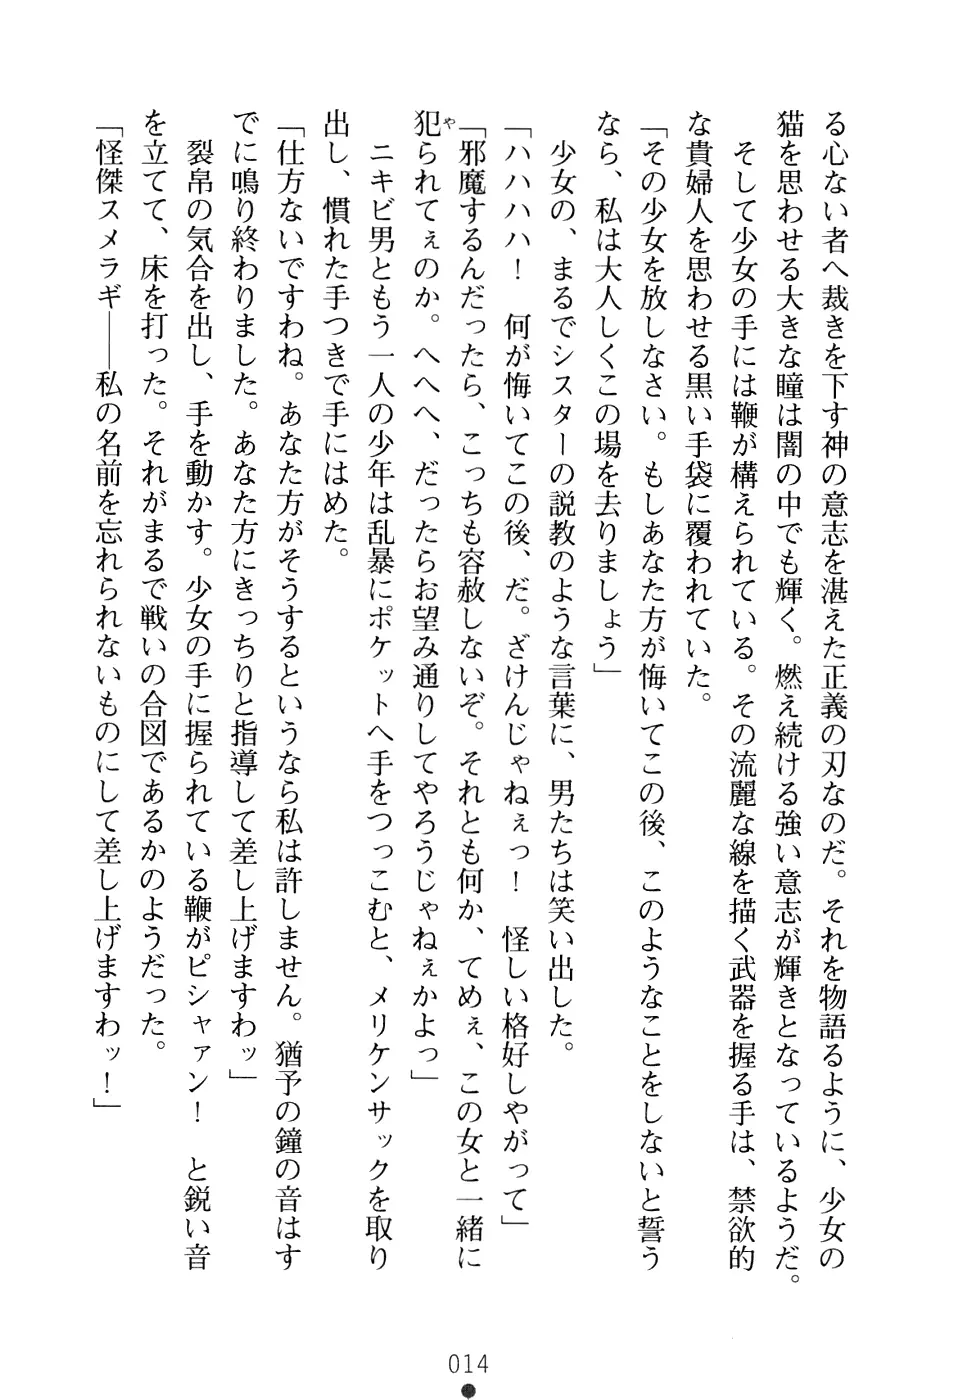 る心ない者へ裁きを下す神の意志を湛えた正義の刃なのだ。それを物語るように、少女の
猫を思わせる大きな瞳は闇の中でも輝く。燃え続ける強い意志が輝きとなっているようだ。
そして少女の手には鞭が構えられている。その流麗な線を描く武器を握る手は、禁欲的
な貴婦人を思わせる黒い手袋に覆われていた。
「その少女を放しなさい。もしあなた方が悔いてこの後、このようなことをしないと誓う
なら、私は大人しくこの場を去りましょう」
少女の、まるでシスターの説教のような言葉に、男たちは笑い出した。
「ハハハハ！　何が悔いてこの後、だ。ざけんじゃねぇっ！　怪しい格好しやがって」
「邪魔するんだったら、こっちも容赦しないぞ。それとも何か、てめぇ、この女と一緒に
犯られてぇのか。へへへ、だったらお望み通りしてやろうじゃねぇかよっ」
ニキビ男ともう一人の少年は乱暴にポケットへ手をつっこむと、メリケンサックを取り
出し、慣れた手つきで手にはめた。
「仕方ないですわね。あなた方がそうするというなら私は許しません。猶予の鐘の音はす
でに鳴り終わりました。あなた方にきっちりと指導して差し上げますわッ」
裂帛の気合を出し、手を動かす。少女の手に握られている鞭がピシャァン！　と鋭い音
を立てて、床を打った。それがまるで戦いの合図であるかのようだった。
「怪傑スメラギ――私の名前を忘れられないものにして差し上げますわッ！」
や
014